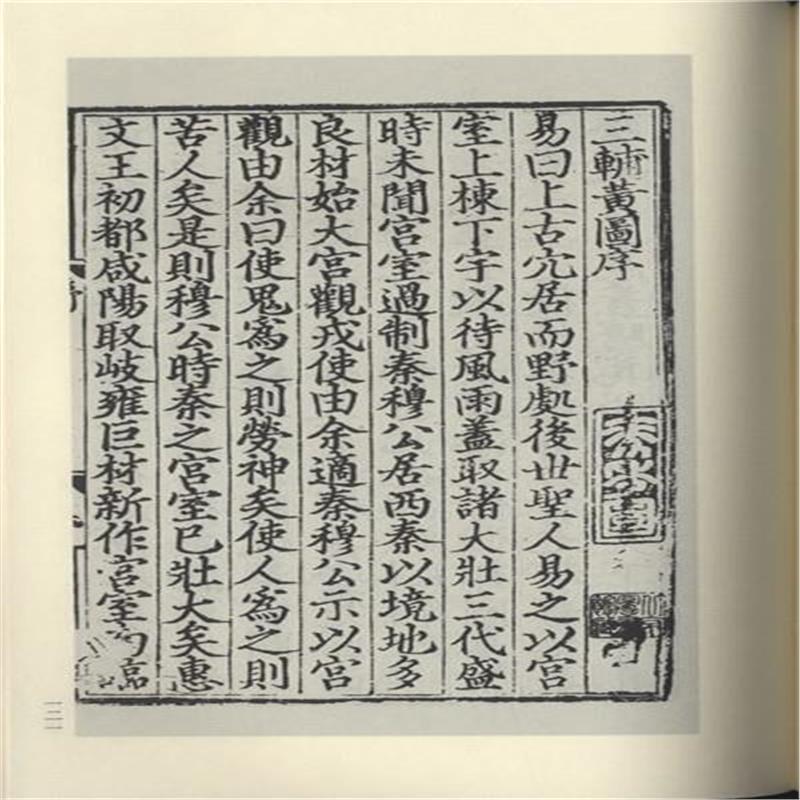 三輔黃圖序
易曰上古穴居而野處後世聖人易之以宮
室上棟下宇以待風雨蓋取諸大壯三代盛
時未聞宮室過制秦穆公居西秦以境地多
良材始大宮觀戎使由余適秦穆公示以宮
觀由余曰使鬼爲之則勞神矣使人爲之則
苦人矣是則穆公時秦之宮室已壯大矣惠
文王初都咸陽取岐雍巨材新作宮室
三一